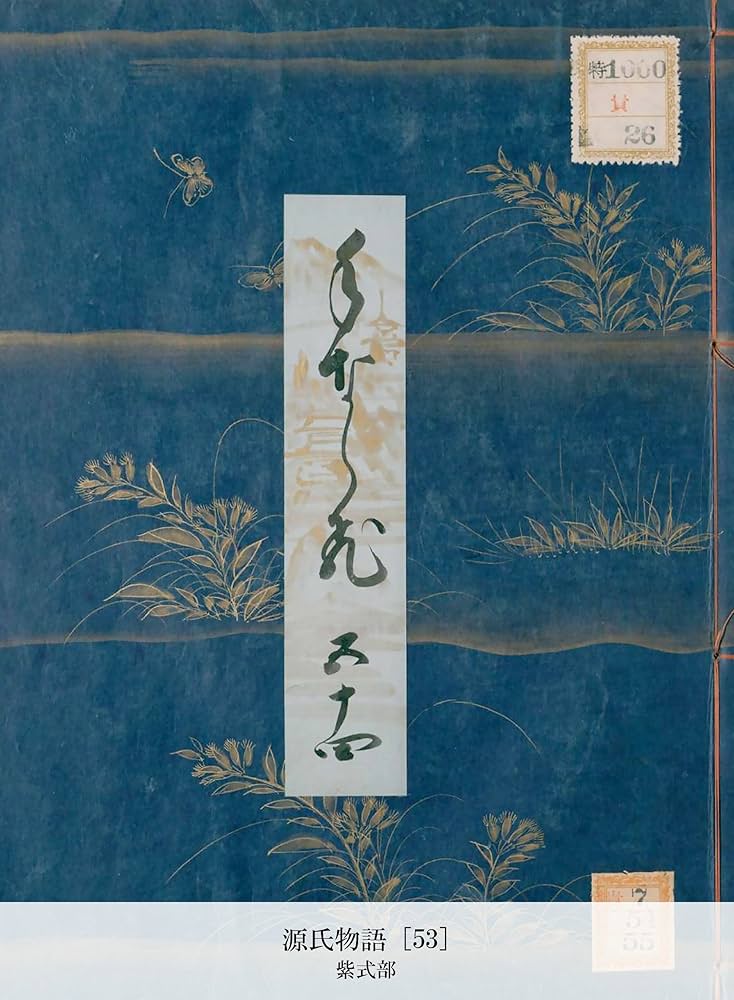 手ならひ 五十四
特1000
26
7
51
55
源氏物語［53］
紫式部